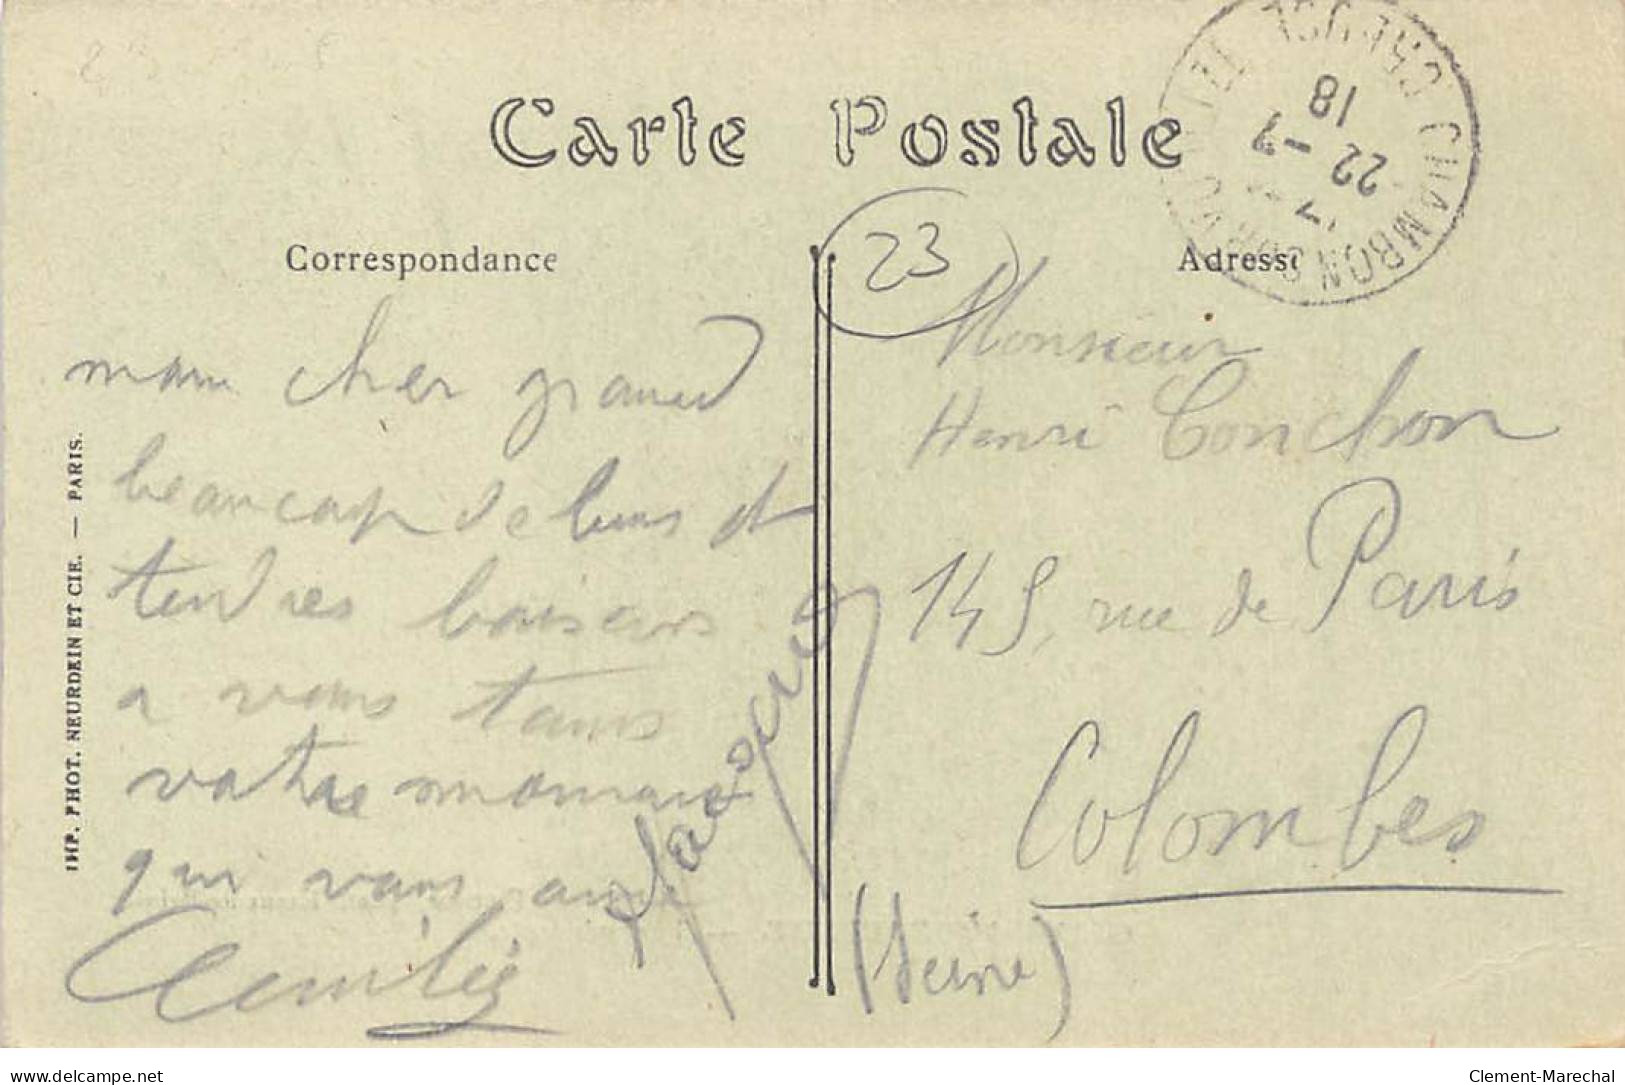 Carte Postale
Correspondance
Adresse
23
mam cher grand
beaucoup de bons et
tendres baisers
a vous tams
vatre
qui vous
IMP. PHOT. NEURDEIN ET CIE. — PARIS.
Monsieur
Henri Conchon
145, rue de Paris
Colombes
(Seine)
CHAMBON S VOUEIZE CREUSE
18
22 -7
delcampe.net
Clement-Marechal